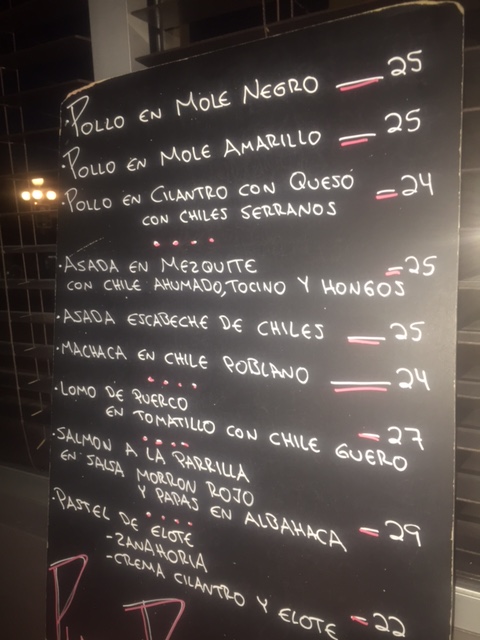 ·Pollo en Mole Negro — 25
·Pollo en Mole Amarillo — 25
·Pollo en Cilantro con Queso = 24
con chiles serranos
·Asada en Mezquite = 25
con chile ahumado, tocino y hongos
·Asada escabeche de chiles — 25
·Machaca en chile poblano — 24
·Lomo de puerco
en tomatillo con chile guero — 27
·Salmon a la parrilla
en salsa morron rojo
y papas en albahaca — 29
·Pastel de elote
-zanahoria
-crema cilantro y elote — 22